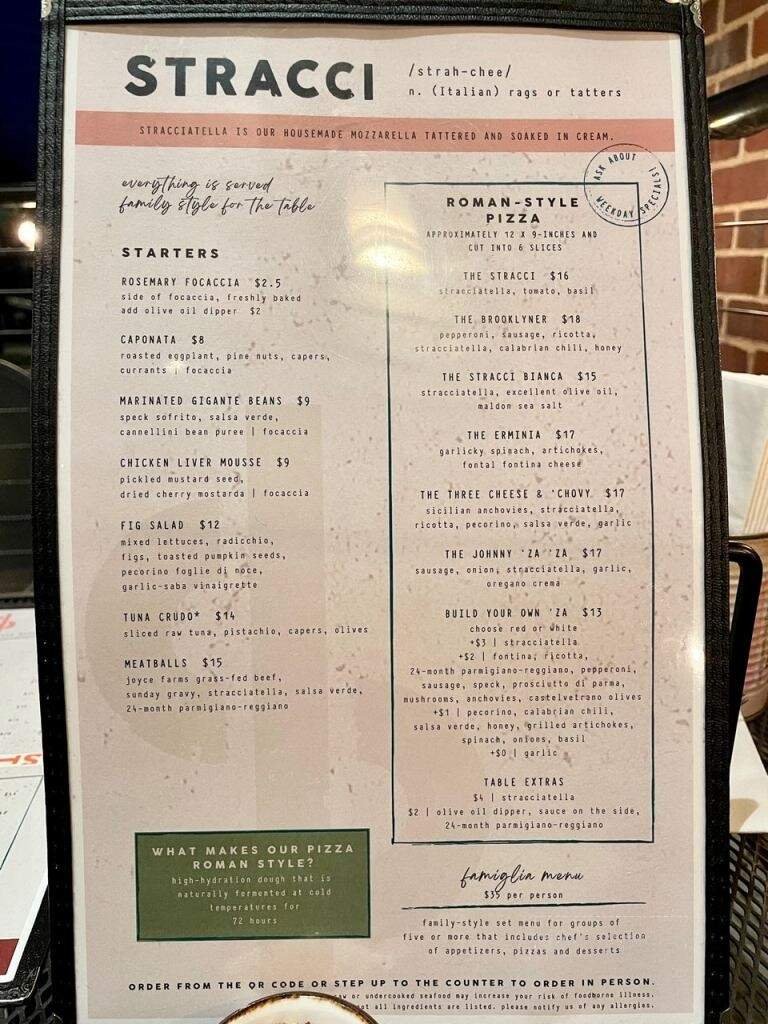 STRACCI
/strah-chee/
n. (Italian) rags or tatters
STRACCIATELLA IS OUR HOUSEMADE MOZZARELLA TATTERED AND SOAKED IN CREAM.
ASK ABOUT
WEEKDAY SPECIALS!
everything is served
family style for the table
STARTERS
ROSEMARY FOCACCIA $2.5
side of focaccia, freshly baked
add olive oil dipper $2
CAPONATA $8
roasted eggplant, pine nuts, capers,
currants | focaccia
MARINATED GIGANTE BEANS $9
speck sofrito, salsa verde,
cannellini bean puree | focaccia
CHICKEN LIVER MOUSSE $9
pickled mustard seed,
dried cherry mostarda | focaccia
FIG SALAD $12
mixed lettuces, radicchio,
figs, toasted pumpkin seeds,
pecorino foglie di noce,
garlic-saba vinaigrette
TUNA CRUDO* $14
sliced raw tuna, pistachio, capers, olives
MEATBALLS $15
joyce farms grass-fed beef,
sunday gravy, stracciatella, salsa verde,
24-month parmigiano-reggiano
WHAT MAKES OUR PIZZA
ROMAN STYLE?
high-hydration dough that is
naturally fermented at cold
temperatures for
72 hours
ROMAN-STYLE
PIZZA
APPROXIMATELY 12 X 9-INCHES AND
CUT INTO 6 SLICES
THE STRACCI $16
stracciatella, tomato, basil
THE BROOKLYNER $18
pepperoni, sausage, ricotta,
stracciatella, calabrian chili, honey
THE STRACCI BIANCA $15
stracciatella, excellent olive oil,
maldon sea salt
THE ERMINIA $17
garlicky spinach, artichokes,
fontal fontina cheese
THE THREE CHEESE & 'CHOVY $17
sicilian anchovies, stracciatella,
ricotta, pecorino, salsa verde, garlic
THE JOHNNY 'ZA 'ZA $17
sausage, onion, stracciatella, garlic,
oregano crema
BUILD YOUR OWN 'ZA $13
choose red or white
+$3 | stracciatella
+$2 | fontina, ricotta,
24-month parmigiano-reggiano, pepperoni,
sausage, speck, prosciutto di parma,
mushrooms, anchovies, castelvetrano olives
+$1 | pecorino, calabrian chili,
salsa verde, honey, grilled artichokes,
spinach, onions, basil
+$0 | garlic
TABLE EXTRAS
$4 | stracciatella
$2 | olive oil dipper, sauce on the side,
24-month parmigiano-reggiano
famiglia menu
$35 per person
family-style set menu for groups of
five or more that includes chef's selection
of appetizers, pizzas and desserts
ORDER FROM THE QR CODE OR STEP UP TO THE COUNTER TO ORDER IN PERSON.
or undercooked seafood may increase your risk of foodborne illness.
not all ingredients are listed. please notify us of any allergies.